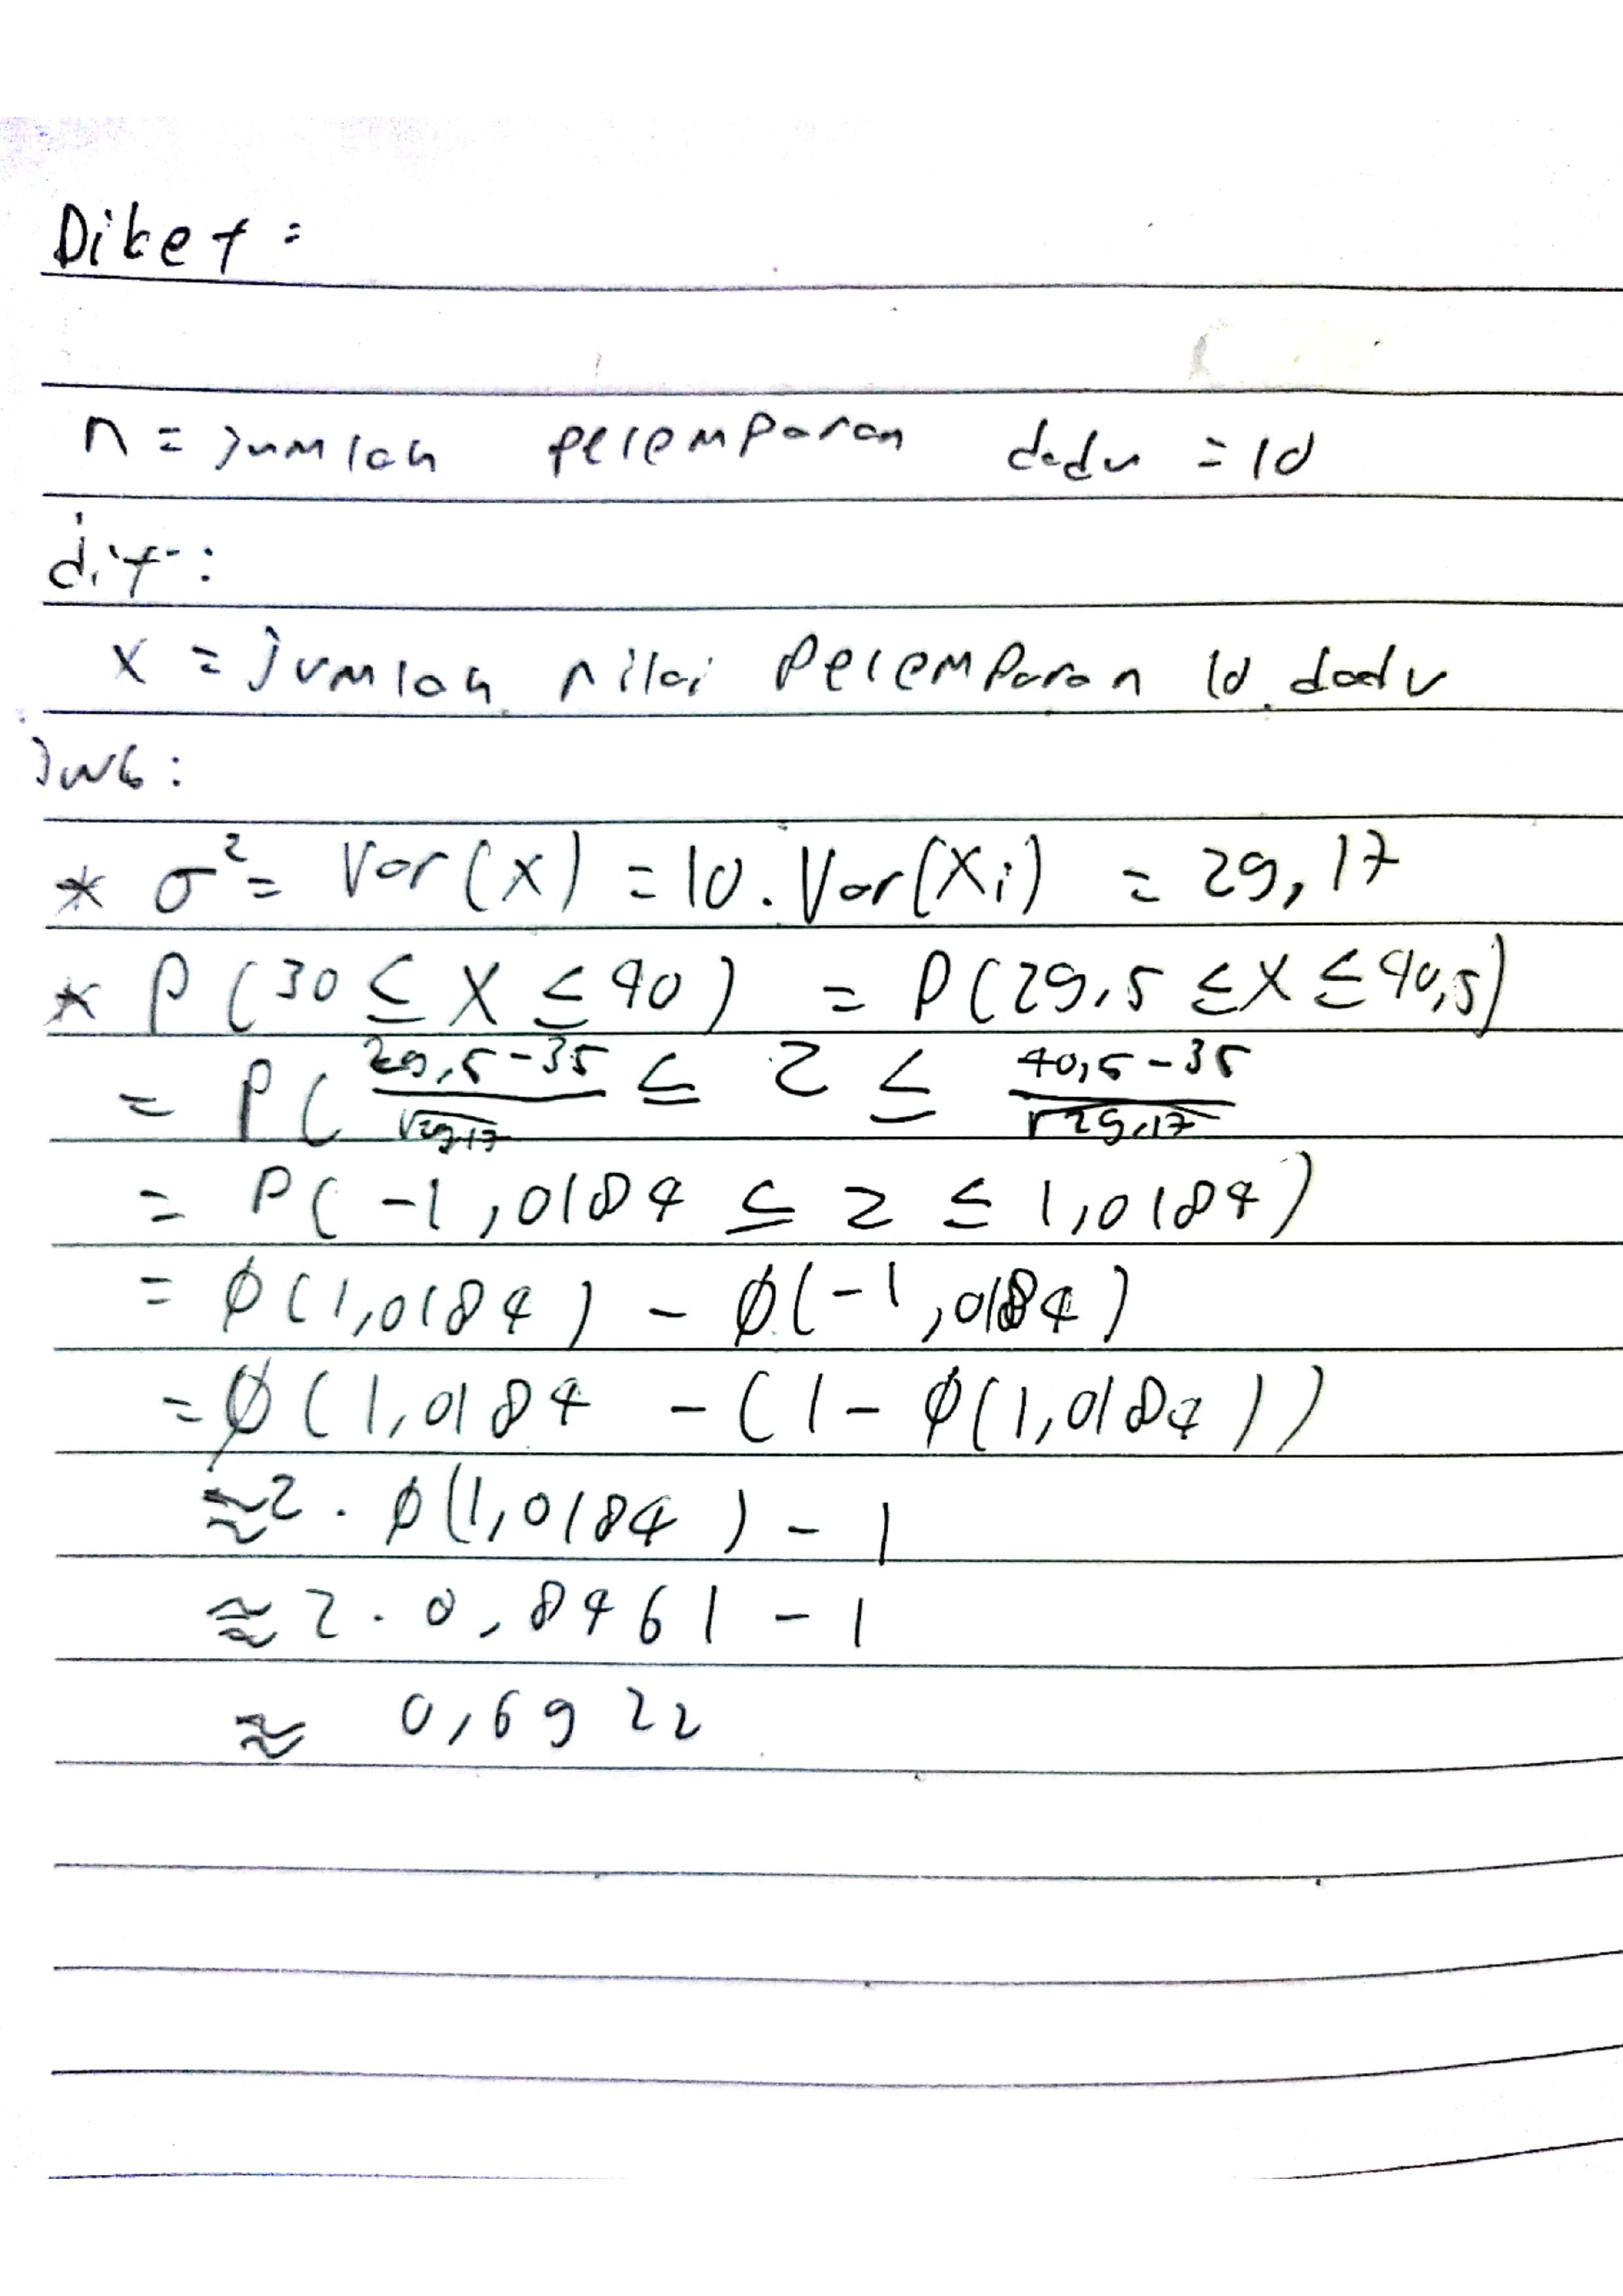 Diket =
n = jumlah pelemparan dadu = 10
dit :
x = jumlah nilai Pelemparan 10 dadu
jwb :
* σ² = Var(x) = 10 . Var(Xi) = 29,17
* P(30 ≤ X ≤ 40) = P(29,5 ≤ X ≤ 40,5)
= P( (29,5-35)/√29,17 ≤ Z ≤ (40,5-35)/√29,17
= P(-1,0184 ≤ Z ≤ 1,0184)
= ϕ(1,0184) - ϕ(-1,0184)
= ϕ(1,0184 - (1 - ϕ(1,0184))
≈ 2 . ϕ(1,0184) - 1
≈ 2 . 0,8461 - 1
≈ 0,6922